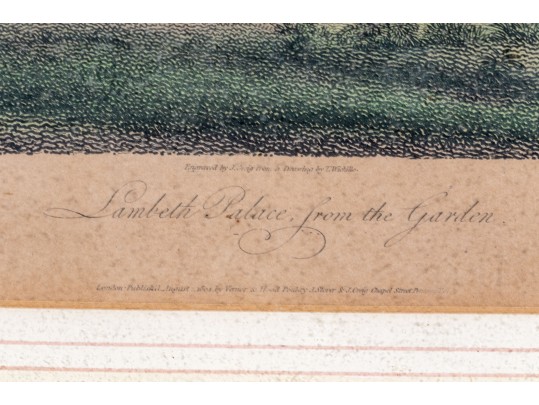 Engraved by J. Greig from a Drawing by T. Whichelo
Lambeth Palace, from the Garden.
London Published August 1 1804 by Vernor & Hood Poultry J. Storer & J. Greig Chapel Street